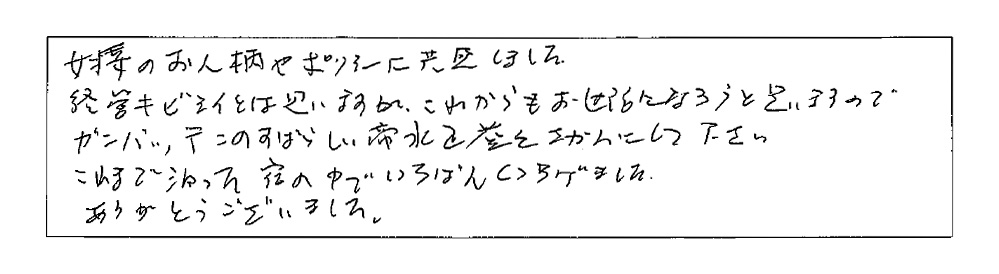 女将のお人柄やポリシーに共感しました。
経営キビシイとは思いますが、これからもお世話になろうと思いますので
ガンバッテこのすばらしい

を大切にして下さい
これまで泊った宿の中でいちばんくつろげました。
ありがとうございました。